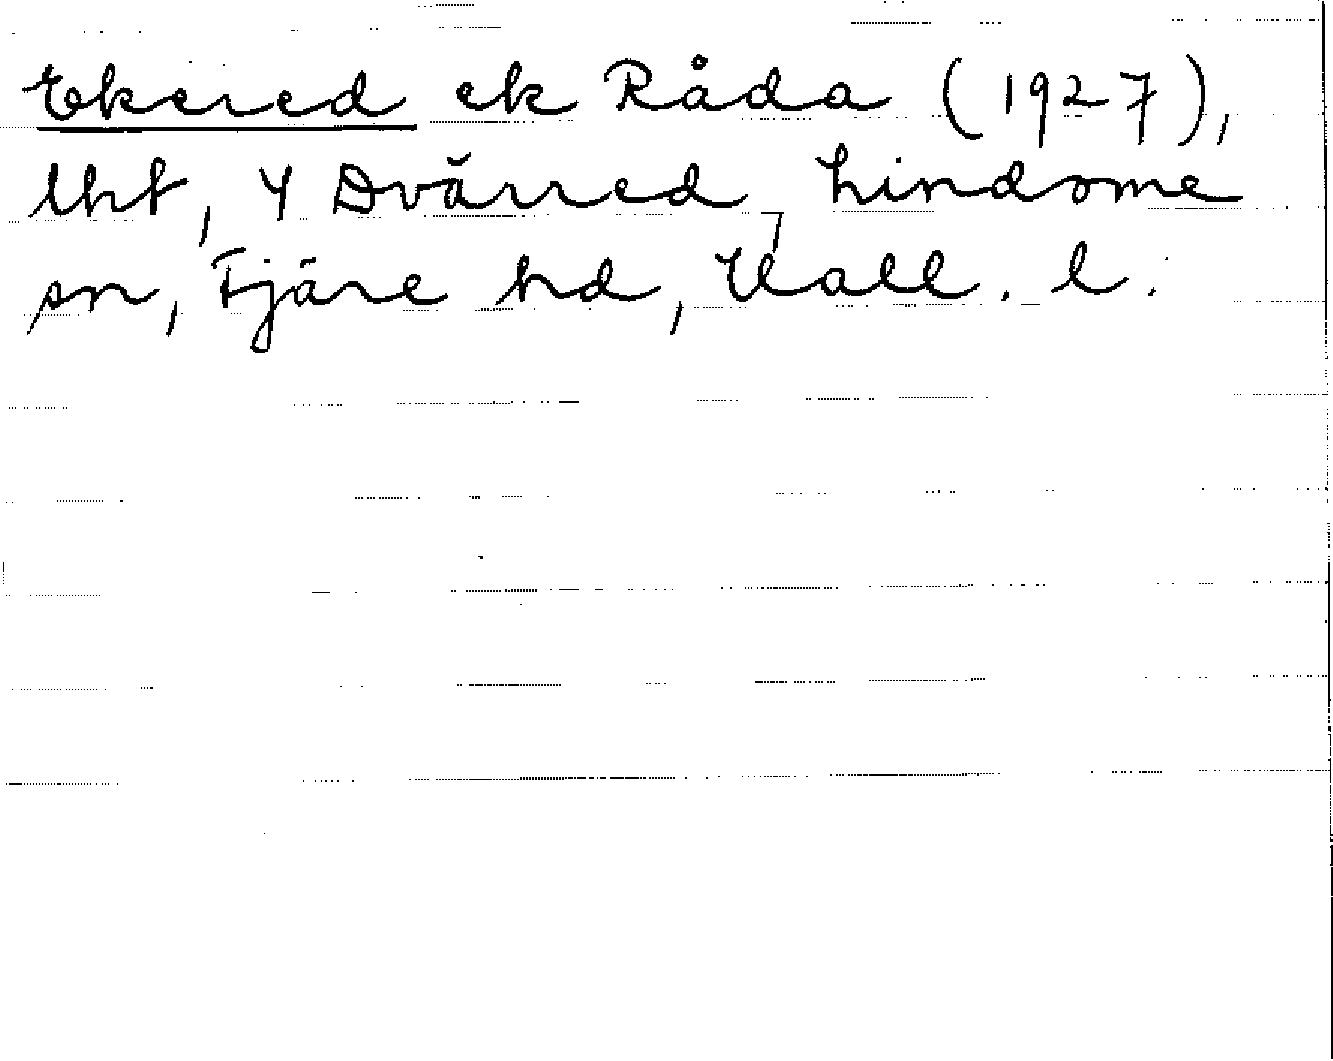 Ekered ek Råda (1927),
lht, Y Dvärred, Lindome
sn, Fjäre hd, Hall. l.